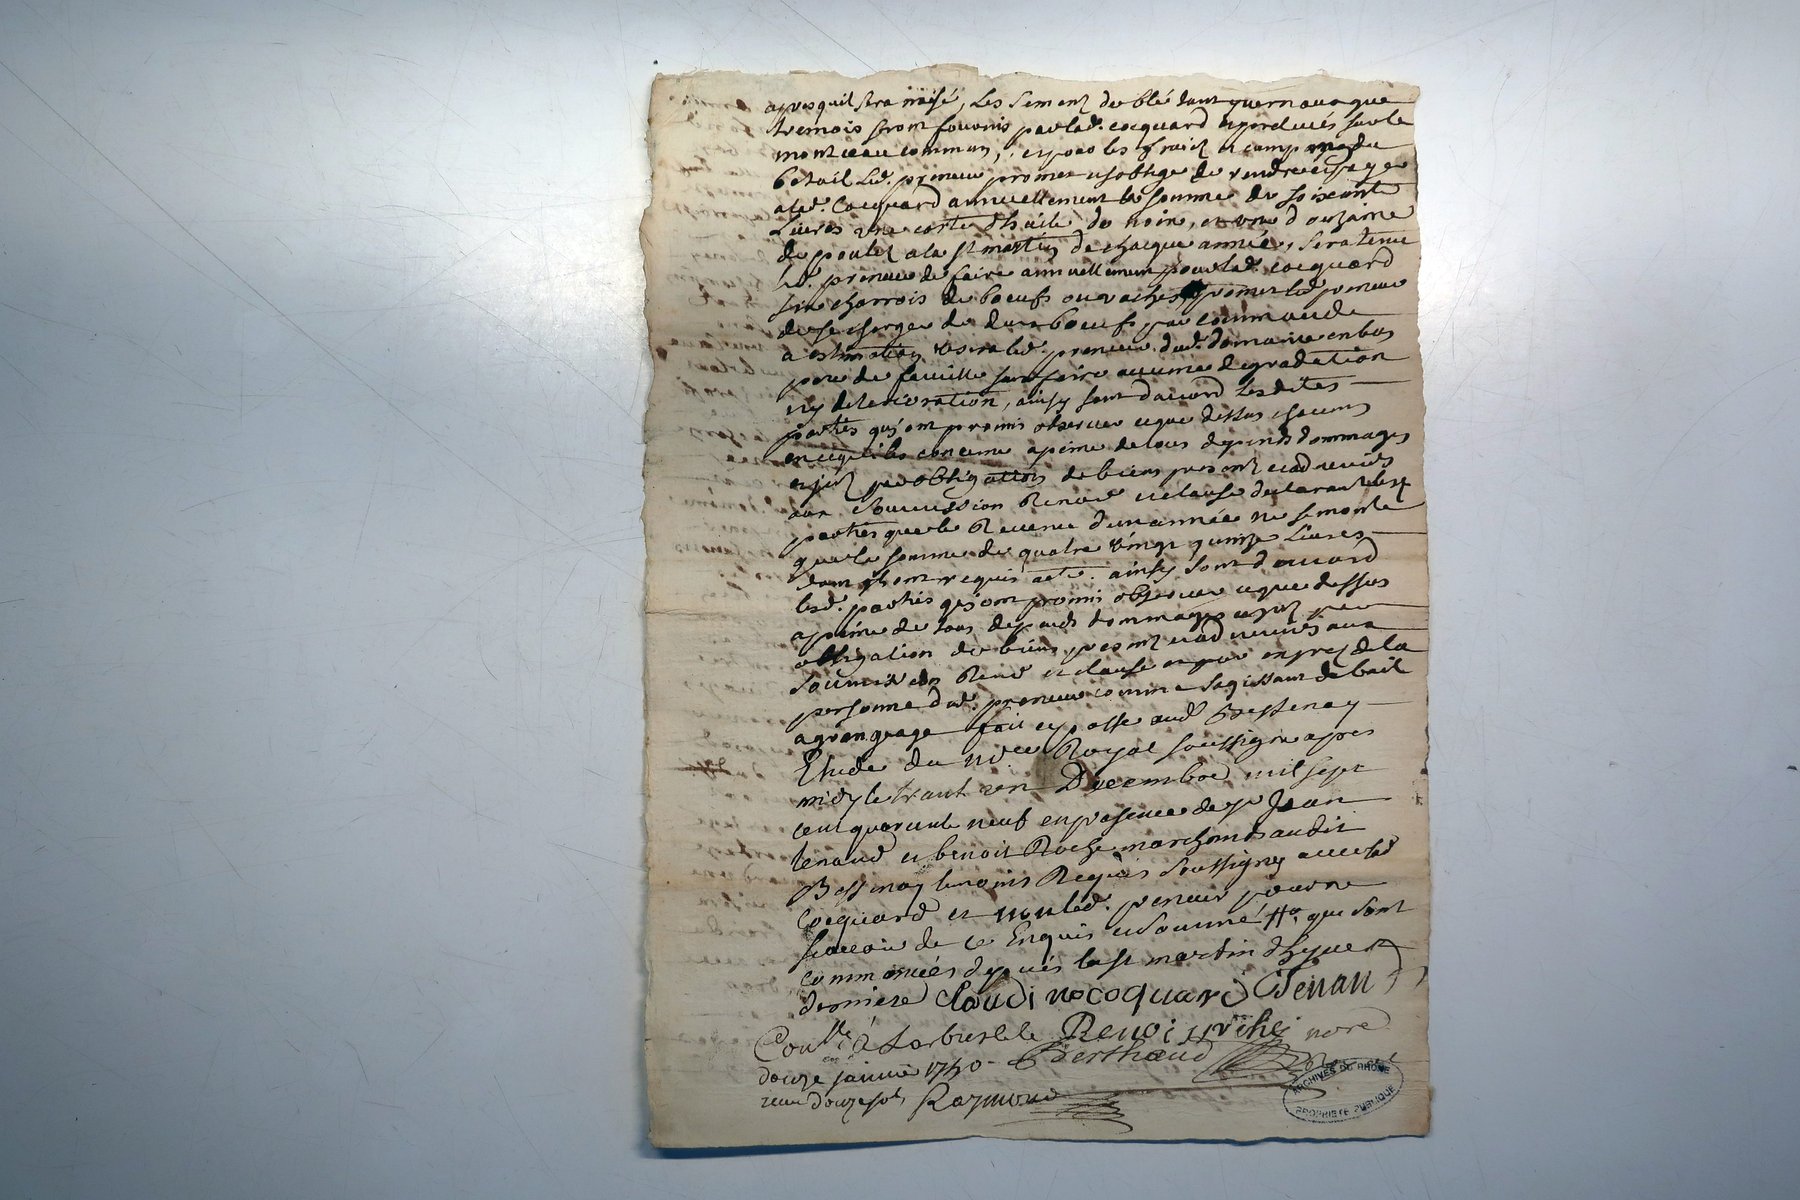 apres quil sera maise, les semens de blé tant quernaux que
tremois seront fournis par lad. cocquard et prelevés sur le
monceau commun, et pour les fruits et
bétail led. preneur promet et s'oblige de rendre et payer
alad. Cocquard annuellement la somme de soixante
Livres une carte d'huile de noix, et une douzaine
de poulets a la st martin de chacque année, sera tenu
led. preneur de faire annuellement pour lad. cocquard
six charrois de boeufs ou vaches promet led preneur
de se charger de deux boeufs par commande
a estimation led. preneur dud. domaine en bon
pere de famille sans faire aucune degradation
ny deterioration, ainsy sont d'accord lesdites
parties qui ont promis observer ce que dessus chacuns
en ce qui les concerne a peine de tous depends dommages
et jnts par obligation de biens presents et advenirs
aux soumission Renon et clause declarant lesd
parties que le Revenu d'une année ne se monte
que la somme de quatre vingt quinze Livres
dont ils ont requis acte. ainsy sont d'accord
lesd. parties qui ont promis observer ce que dessus
a peine de tous depends dommages et jnts par
obligation de biens presents et advenirs aux
soumission Renon et clause et par exprez de la
personne dud. preneur comme s'agissant de bail
a grangeage fait et passé aud Bessenay
Etude du no.re Royal soussigné apres
midy le trant un Decembre mil sept
cent quarante neuf en presence de sr Jean
tenaud et benoit Roche marchands audit
Bessenay temoins Requis soussignes avec lad
Cocquard et non led. preneur pour ne
scavoir de ce Enquis et sommé que sont
commancées depuis la st martin d'hyver
derniere Claudinecoquard Tenau
Conlle à Larbresle Benoi roche
douze janvier 1750 Berthaud nore
Receu douze sols Raymond
ARCHIVES DU RHÔNE
PROPRIÉTÉ PUBLIQUE